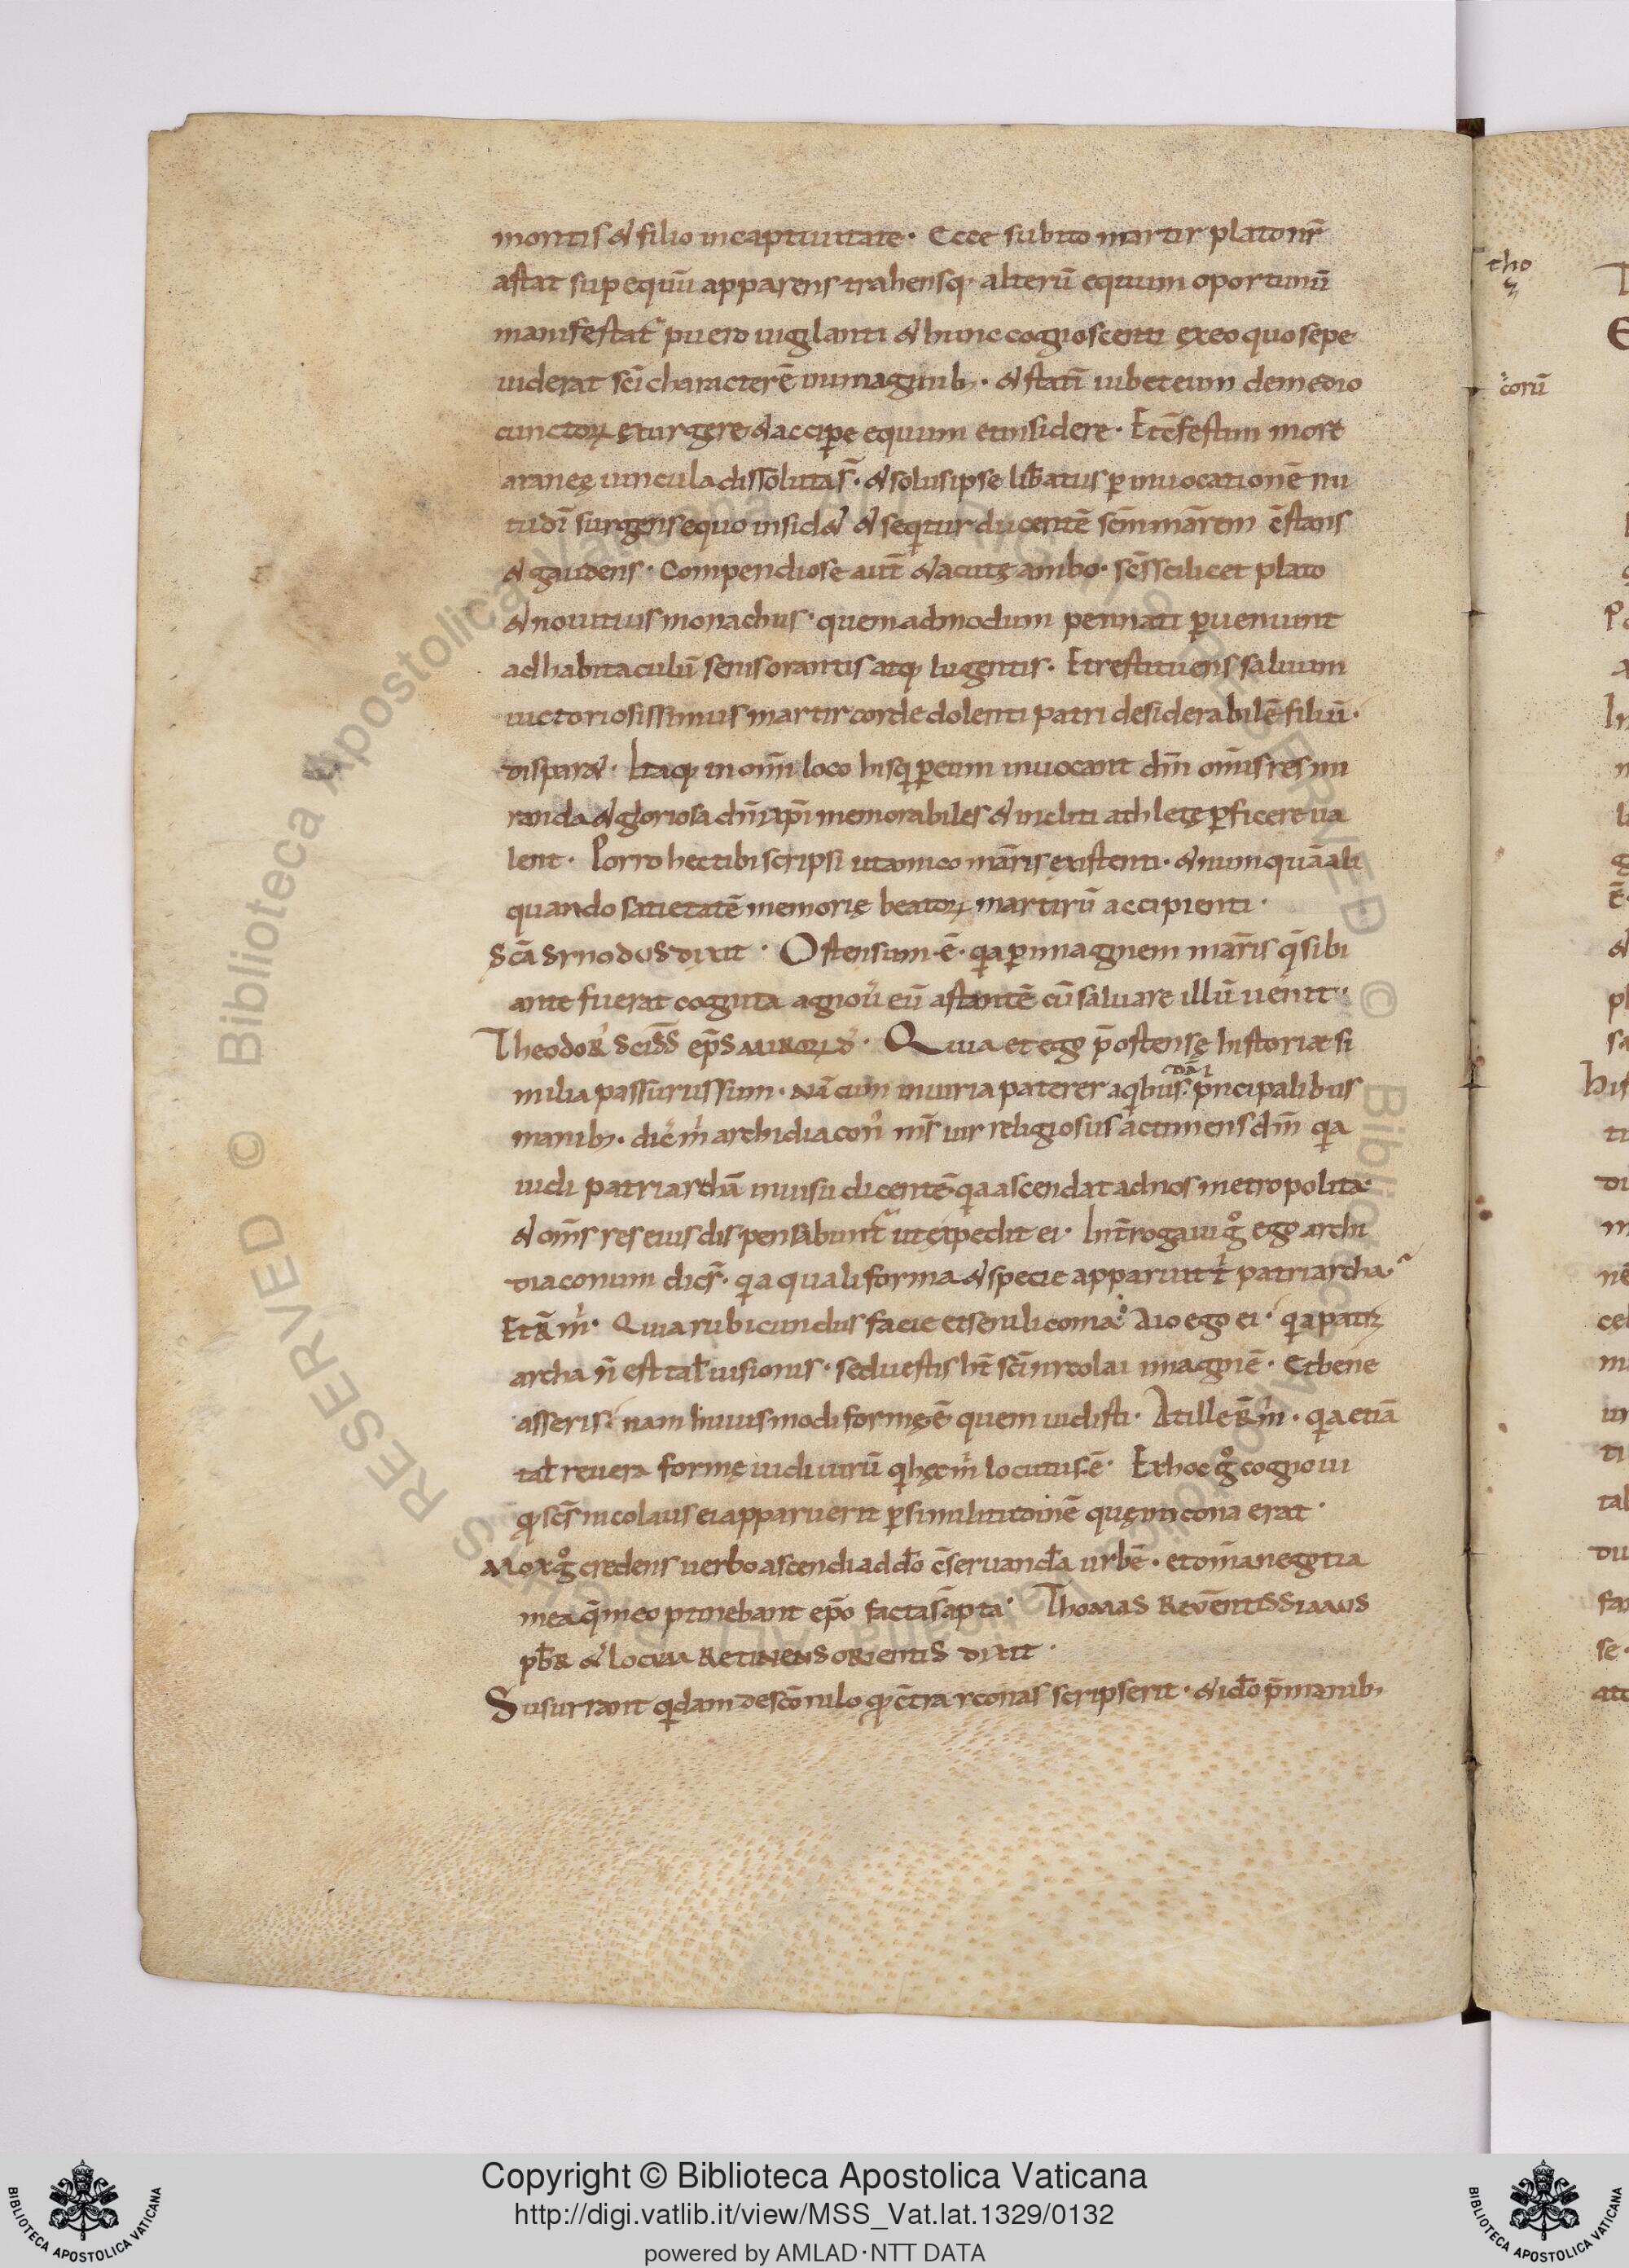 montis & filio incaptiuitate· Ecce subito martir plato nr̄
astat sup equū apparens trahensq; alterū equum oportunū
manifestat̄ puero uigilanti & hunc cognoscenti ęxeo quo sepe
uiderat sc̄i characterē inimaginib;· & statī iubet eum demedio
cunctoꝝ ęturgere & accipe equum et insidere· Etc̄festim more
araneę uincula dissoluta s̄· & solusipse lib̄atus ꝑ inuocationē nu
tudī surgens equo insid& & seqitur ducentē sc̄m mārem c̄stans
& gaudens· Compendiose aut̄ & acutę ambo· sc̄s scilicet plato
& nouitius monachus· quemadmodum pennati ꝑuenunt
ad habitaculū senis orantis atq; lugentis· Et restituens saluum
uictoriosissimus martir corde dolenti patri desiderabilē filiū·
dispar&· Itaq; in om̄i loco hisq ꝑ eum inuocant dm̄ om̄is res mi
randa & gloriosa dn̄i xp̄i memorabiles & incliti athletę ꝑficere ua
lent· Porro hec tibi scripsi ut amico mār̄is ęxistenti· & numquā ali
quando satietatē memorię beatoꝝ martirū accipienti·
Sc̄a Synodus dixit· Ostensum ē· qa ꝑ imaginem mār̄is q̄ sibi
ante fuerat cognita agnou̅ eū astantē cū saluare illū uenit··
Theodoꝛ sc̄iss̄ ep̄s miroꝝ d̄· Quia et ego p̄ostensę historiæ si
milia passurus sum· nā cum iniuria paterer aqibus dā ı p̄ncipalibus
manib;· dic̄ m̄ archidiacon᷒ nr̄ uir religiosus ac timens dm̄ qa
uidi patriarchā in uisu dicentē qa ascendat ad nos metropolita·
& om̄s res eius dispensabunt̄ ut ęxpedit ei· Int̄rogaui g̊ ego archi
diaconum dic̄s· qa quali forma & specie apparuit t̄ patriarcha·
Et R̄ m̄· Quia rubicundus facie et senili coma· Aio ego ei· qa patri
archa n̄ est tal̄ uisionis· sed uestis ht̄ sc̄i nicolai imaginē· Et bene
asseris· nam huiusmodi formę ē quem uidisti· At ille R̄ m̄· qa etiā
tal̄ reuera formę uidi uirū q hęc m̄ locutus ē· Et hoc g̊ cognoui
qꝫ sc̄s nicolaus ei apparuerit ꝑ similitudinē quę in icona erat·
Mox g̊ credens uerbo ascendi ad d̄o c̄seruanda urbē· et om̄ia negotia
mea q̄ meo ptinebant ep̄o facta s̄ apta· Thomas Reuēntissimus
pb̄r & locum Retinens orientis dixit·
Susurrant qidam de sc̄o nilo qꝫ c̄tra iconas scripserit· & id̄o p̄ manib;
tho
corū
Copyright © Biblioteca Apostolica Vaticana
http://digi.vatlib.it/view/MSS_Vat.lat.1329/0132
powered by AMLAD·NTT DATA
BIBLIOTECA APOSTOLICA VATICANA
BIBLIOTECA APOSTOLICA VATICANA